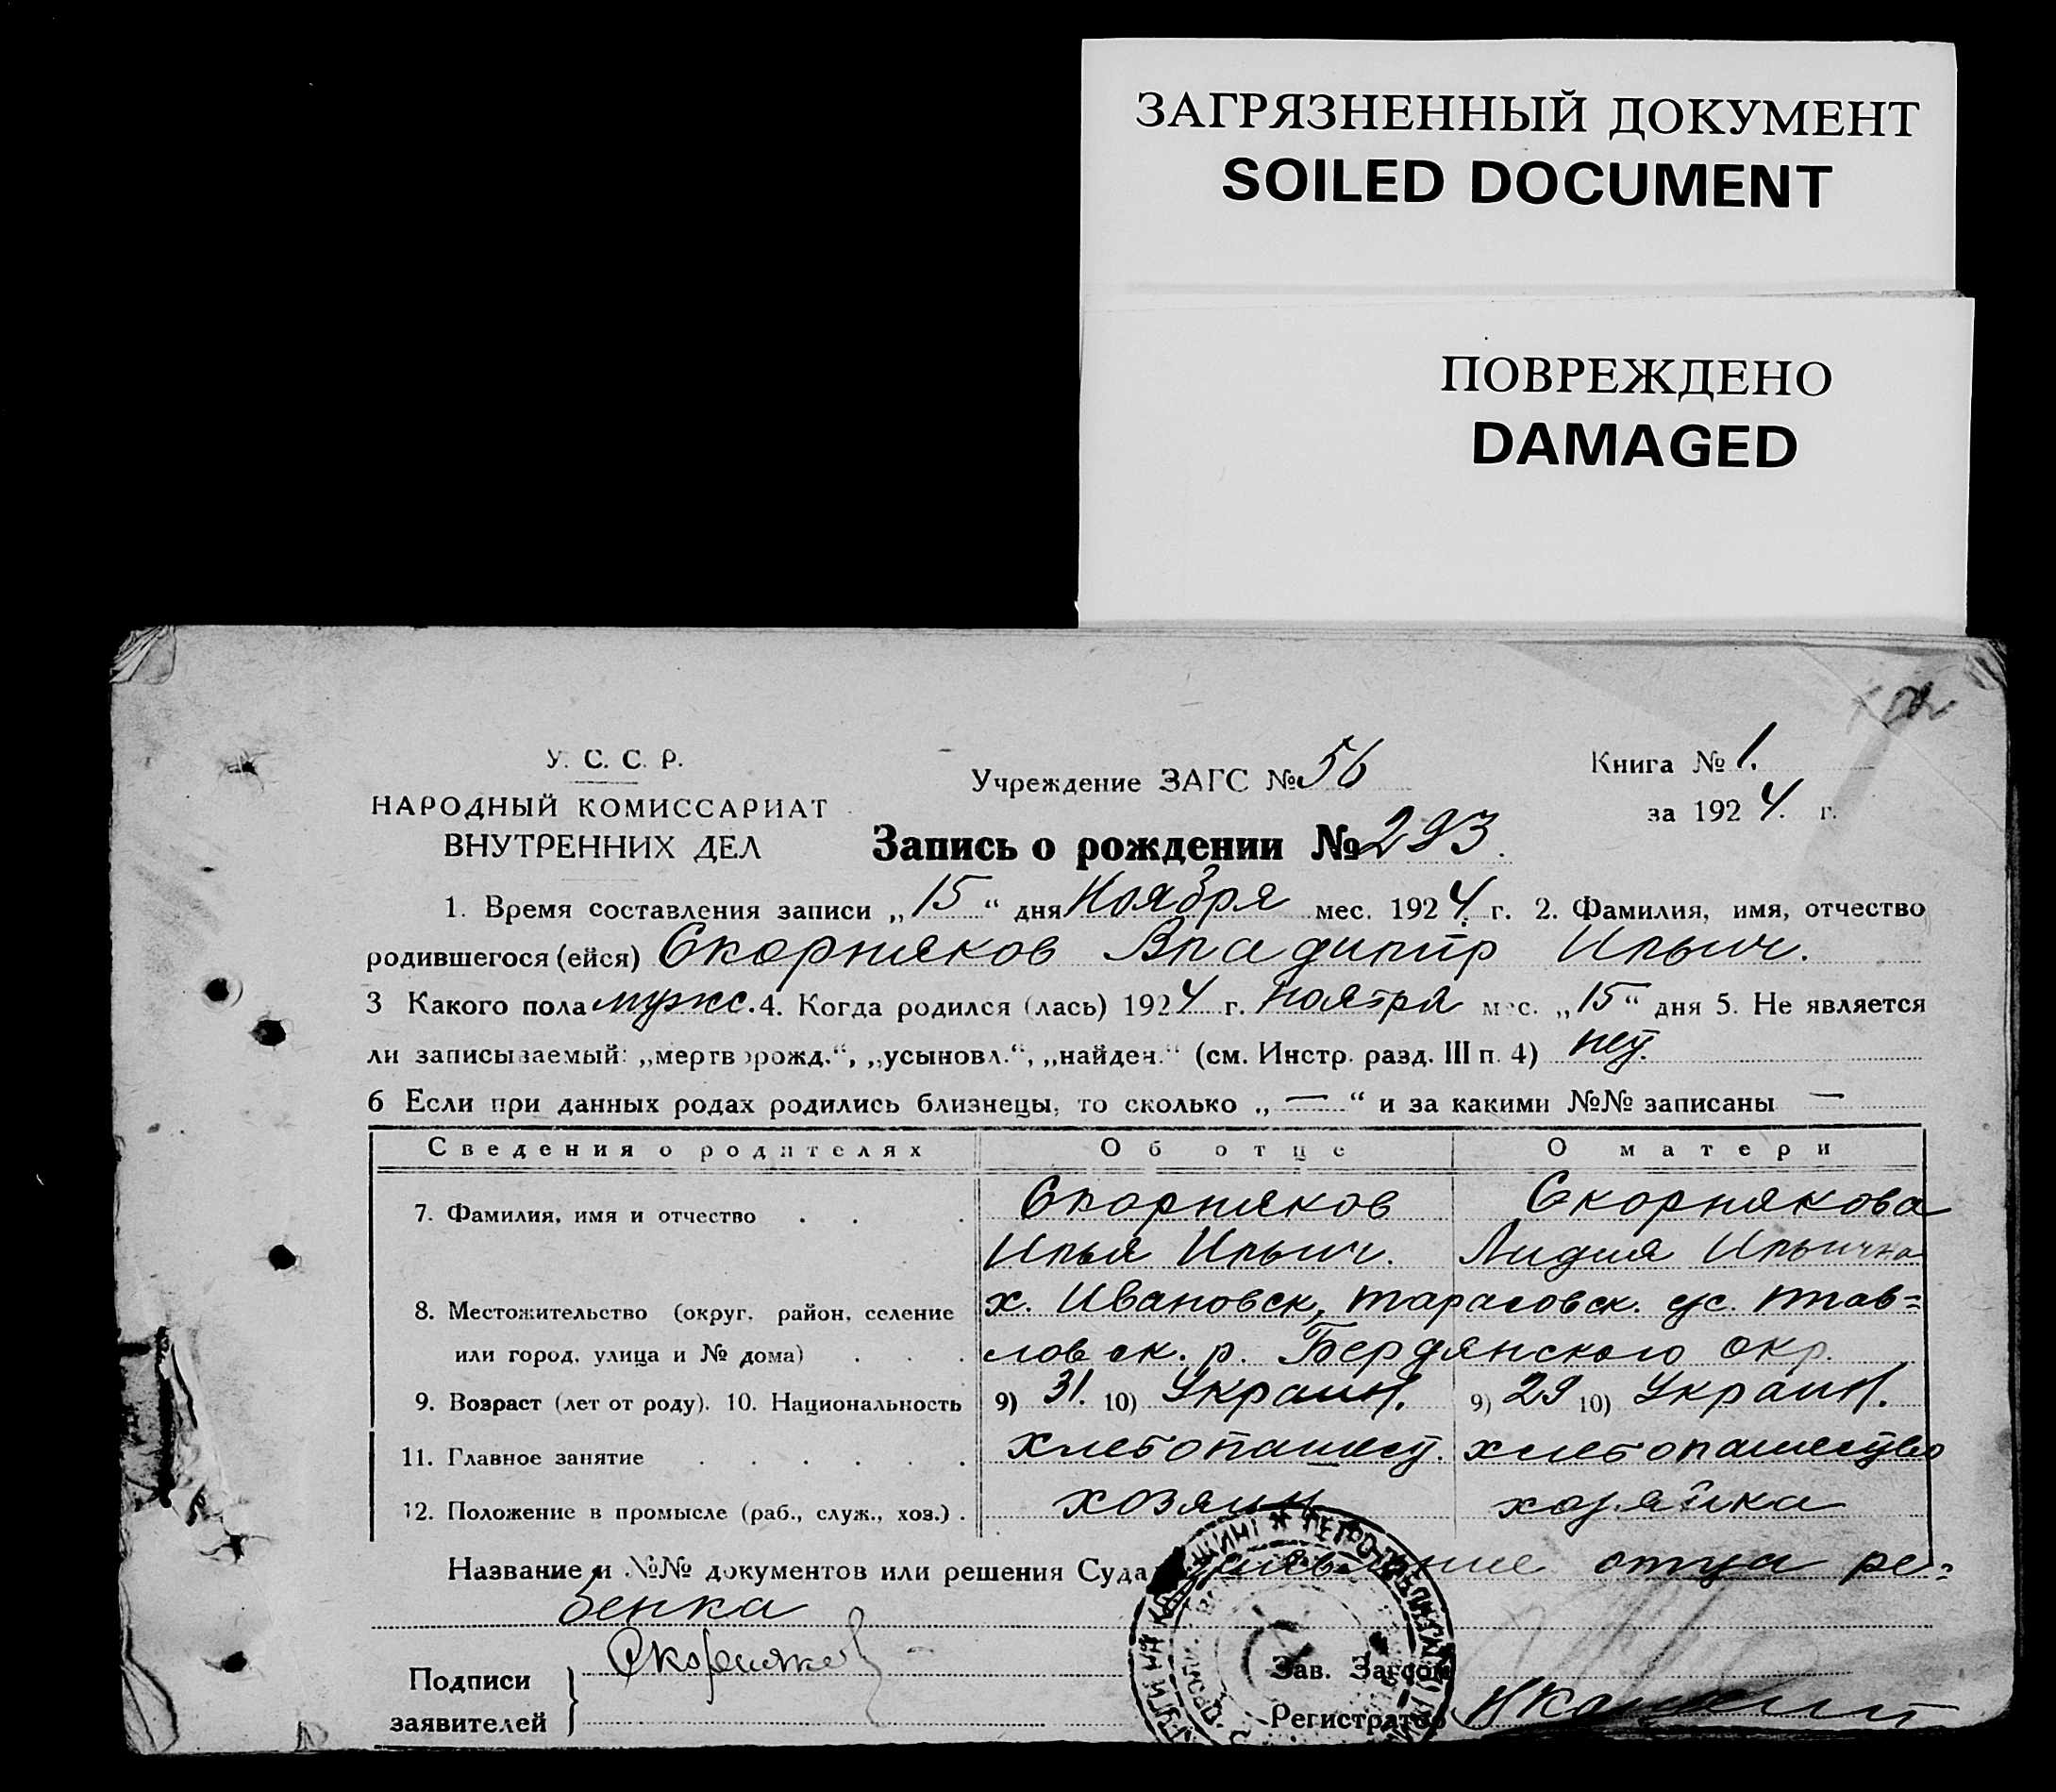 ЗАГРЯЗНЕННЫЙ ДОКУМЕНТ
SOILED DOCUMENT
ПОВРЕЖДЕНО
DAMAGED
У. С. С. Р.
НАРОДНЫЙ КОМИССАРИАТ
ВНУТРЕННИХ ДЕЛ
Учреждение ЗАГС № 56
Книга № 1.
за 1924 г.
Запись о рождении № 293.
1. Время составления записи „15“ дня Ноября мес. 1924 г. 2. Фамилия, имя, отчество
родившегося (ейся) Скорняков Владимир Ильич.
3 Какого пола мужс. 4. Когда родился (лась) 1924 г. ноября мес. „15“ дня 5. Не является
ли записываемый: „мертворожд.“, „усыновл.“, „найден.“ (см. Инстр. разд. III п. 4) нет.
6 Если при данных родах родились близнецы, то сколько „—“ и за какими №№ записаны —
Сведения о родителях Об отце О матери
7. Фамилия, имя и отчество . . . Скорняков Скорнякова
Илья Ильич. Лидия Ильична
8. Местожительство (округ, район, селение х. Ивановск, Тарасовск. с/с.
или город, улица и № дома) . . . ловск. р. Бердянского окр.
9. Возраст (лет от роду). 10. Национальность 9) 31. 10) Украин. 9) 29 10) Украин.
11. Главное занятие . . . . . . хлебопашест. хлебопашество
12. Положение в промысле (раб., служ., хоз.) . хозяин хозяйка
Название и №№ документов или решения Суда заявление отца ре=
бенка
Подписи
заявителей
Скорняков
Зав. Загсом
Регистратор